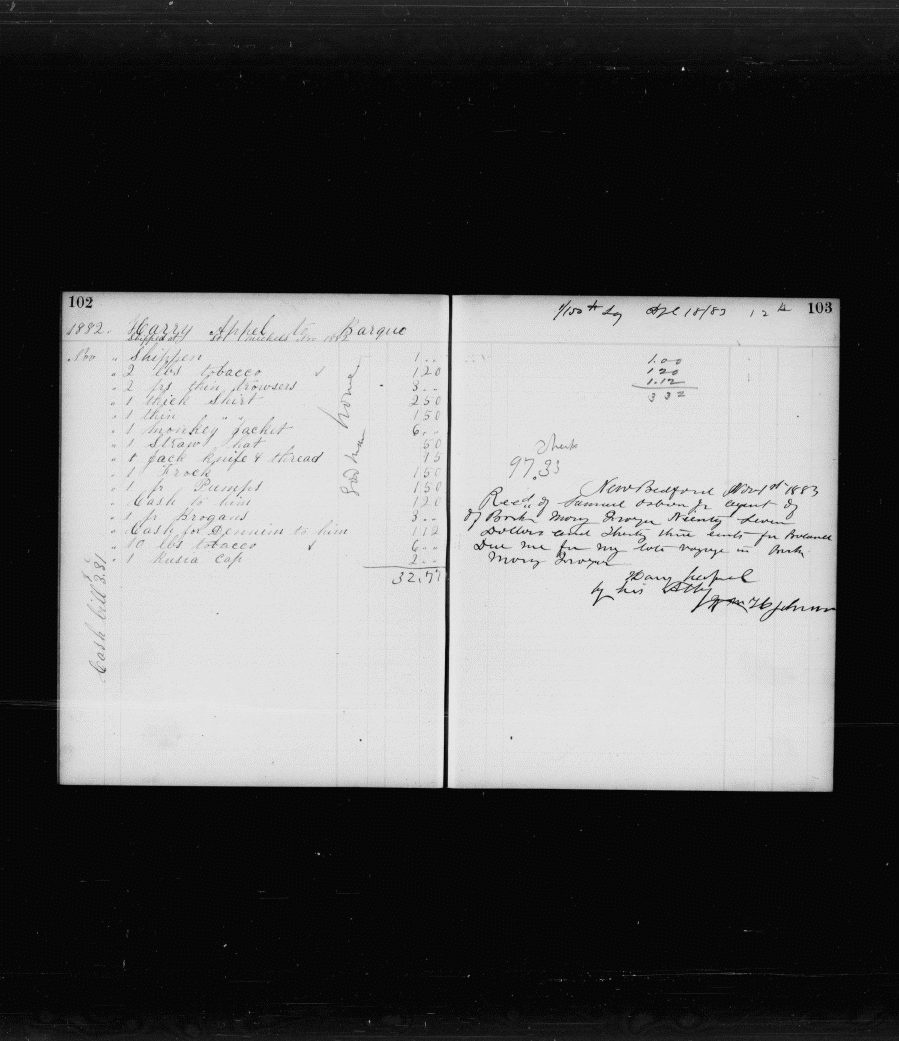 102
1882. Harry Appel to Barque
Shipped at St Michels Nov 1882
Nov " Shippen 1 " "
" 2 lbs tobacco 1 20
" 2 prs thin trowsers 3 " "
" 1 thick Shirt 2 50
" 1 thin " " 1 50
" 1 monkey Jacket 6 " "
" 1 Straw hat 50
" 1 Jack knife & thread 75
" 1 Frock 1 50
" 1 pr Pumps 1 50
" Cash to him 1 20
" 1 pr Brogans 3 " "
" Cash for to him 1 12
" 10 lbs tobacco 6 " "
" 1 Rusia Cap 2 " "
32.77
home
Good man
Cash bill 3.31
103
1/150th lay Apl 18/83 12
1.00
1 20
1.12
3 32
97.33
New Bedford 1883
Recd of Samuel Osborn Jr agent of
of Bark Mary Frazer Ninety Seven
Dollars and Thirty three cents for Balance
Due me for my late voyage in Bark
Mary Frazer
Harry Appel
by his Atty
Johnson